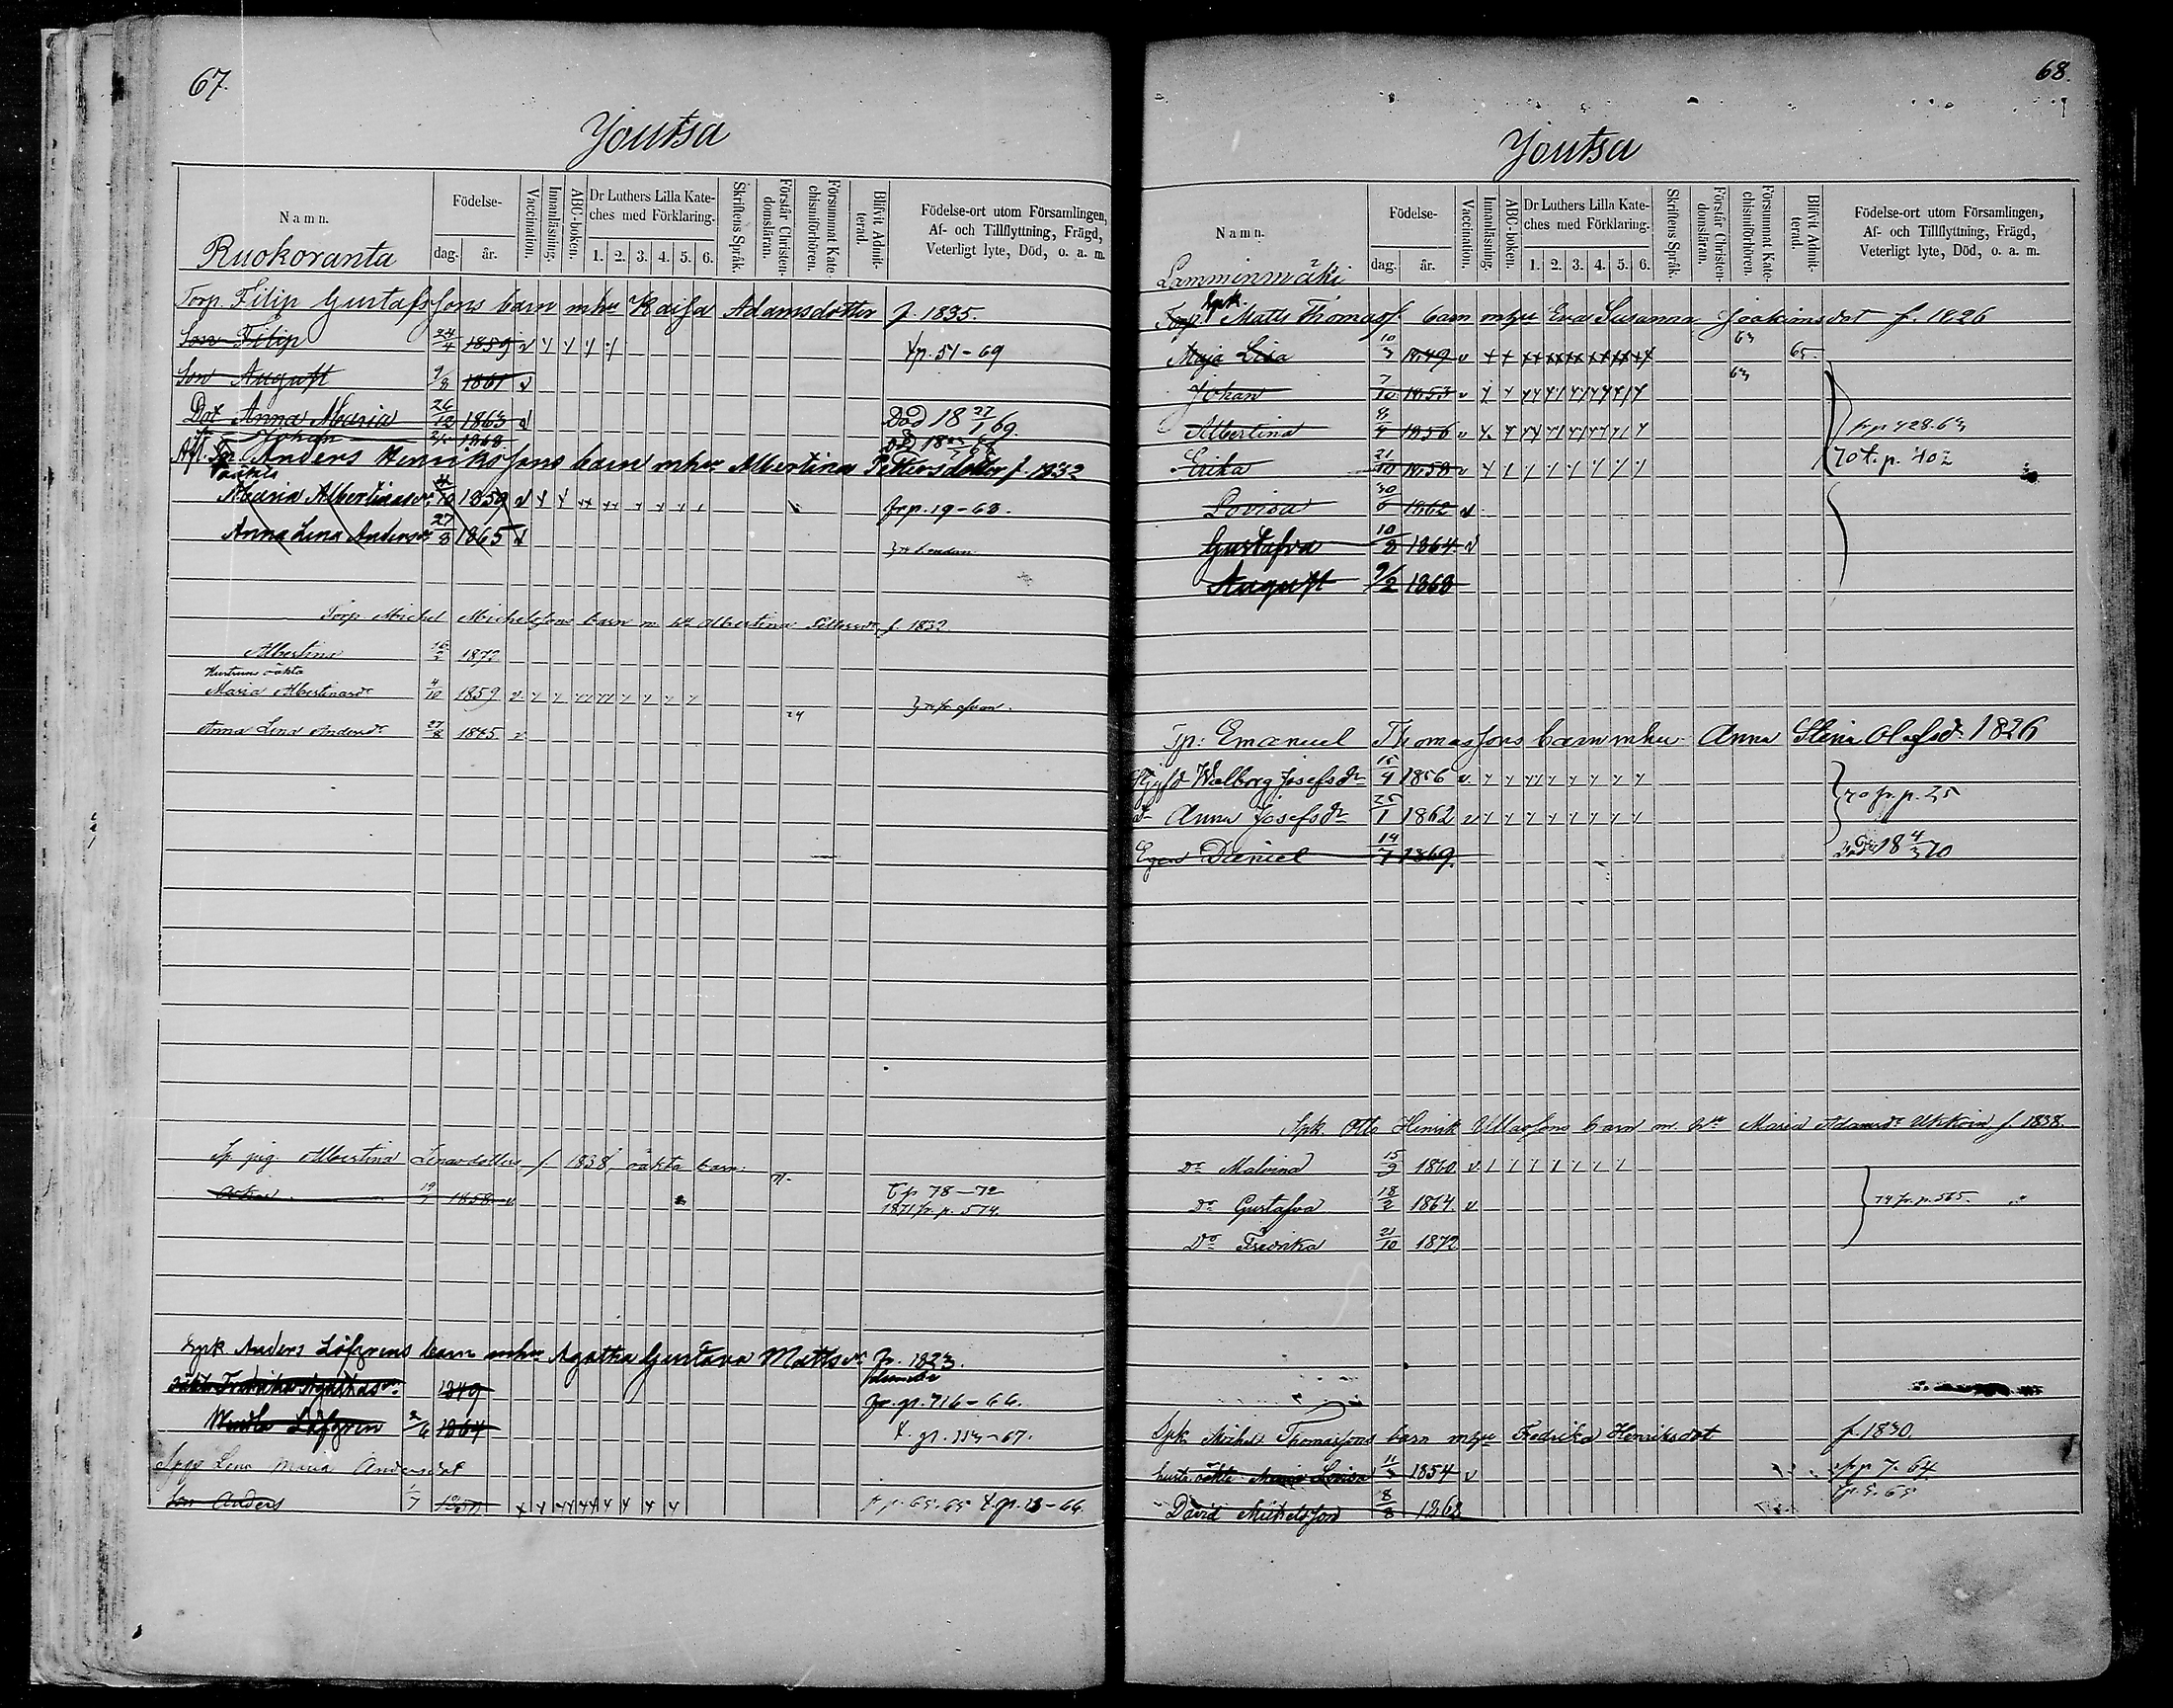 67.
Joutsa
Namn.
Födelse-
dag.
år.
Vaccination.
Innanläsning.
ABC-boken.
Dr Luthers Lilla Kate-
ches med Förklaring.
1. 2. 3. 4. 5. 6.
Skriftens Språk.
Förstår Christen-
domsläran.
Försummat Kate-
chismiförhören.
Blifvit Admit-
terad.
Födelse-ort utom Församlingen,
Af- och Tillflyttning, Frägd,
Veterligt lyte, Död, o. a. m.
Ruokoranta
Torp. Filip Gustafssons barn mhu Kaisa Adamsdotter f. 1835.
Son Filip 24/4 1859 v
51-69
Son August 9/8 1861 v
Dot Anna Maria 26/12 1863 v Död 18 27/1 69.
Johan 1868
Anders Henrikssons barn mhu Albertina Pettersdotter f. 1832
Maria Albertinasdr 1859 v frp. 19-68.
Anna Lena Andersdr 27/8 1865 v
Torp Michel Michelssons barn m. hu Albertina Pettersdr f. 1832
Albertina 1872
Hustruns oäkta
Maria Albertinasdr 4/10 1859 v
24
Anna Lena Andersdr 27/8 1865. v
Sp. pig. Albertina Lenasdotters f. 1838, oäkta barn:
19/1 1858 v t p 78-72
1871 fr. p. 574.
Spk. Anders Löfgrens barn mhu Agatha Gustava Mattsdr fr. 1823.
oäkta Fredrika Agathasdr 1849
fr. p. 716-66.
Wendla Löfgren 1864 t. p. 113-67.
Lena Maria Andersdot
Son Anders 1/7
68.
Joutsa
Namn.
Födelse-
dag.
år.
Vaccination.
Innanläsning.
ABC-boken.
Dr Luthers Lilla Kate-
ches med Förklaring.
1. 2. 3. 4. 5. 6.
Skriftens Språk.
Förstår Christen-
domsläran.
Försummat Kate-
chismiförhören.
Blifvit Admit-
terad.
Födelse-ort utom Församlingen,
Af- och Tillflyttning, Frägd,
Veterligt lyte, Död, o. a. m.
Lamminmäki
Spk.
Torp. Matts Thomass. barn mhu Eva Susanna Joakimsdot f. 1826
Maja Lisa 10/3 1849 v 63 65
Johan 7/10 1853 v 63
Albertina 1856 v frp 428-63
Erika 21/10 1858 v 70 t. p. 402
Lovisa 30/6 1862 v
Gustafva 10/8 1864 v
August 9/2 1868
Tp: Emanuel Thomassons barn mhu Anna Stina Olofsdr 1826
Walborg Josefsdr 15/4 1856 v
70 fr. p. 25
Anna Josefsdr 25/1 1862 v
Egen Daniel 14/7 1869. Död 18 4/3 70
Spk. Otto Henrik Ullassons barn m. hu Maria Adamsdr Ukkoin f. 1838.
Dr Malvina 15/9 1860 v
74 fr. p. 565.
Dr Gustafva 18/2 1864. v
Dr Fredrika 21/10 1872
Spk Michel Thomassons barn mhu Fredrika Henriksdot f. 1830
hustr. oäkta Maria Lovisa 1854 v frp 7-64
David Mickelsson 8/8 1868